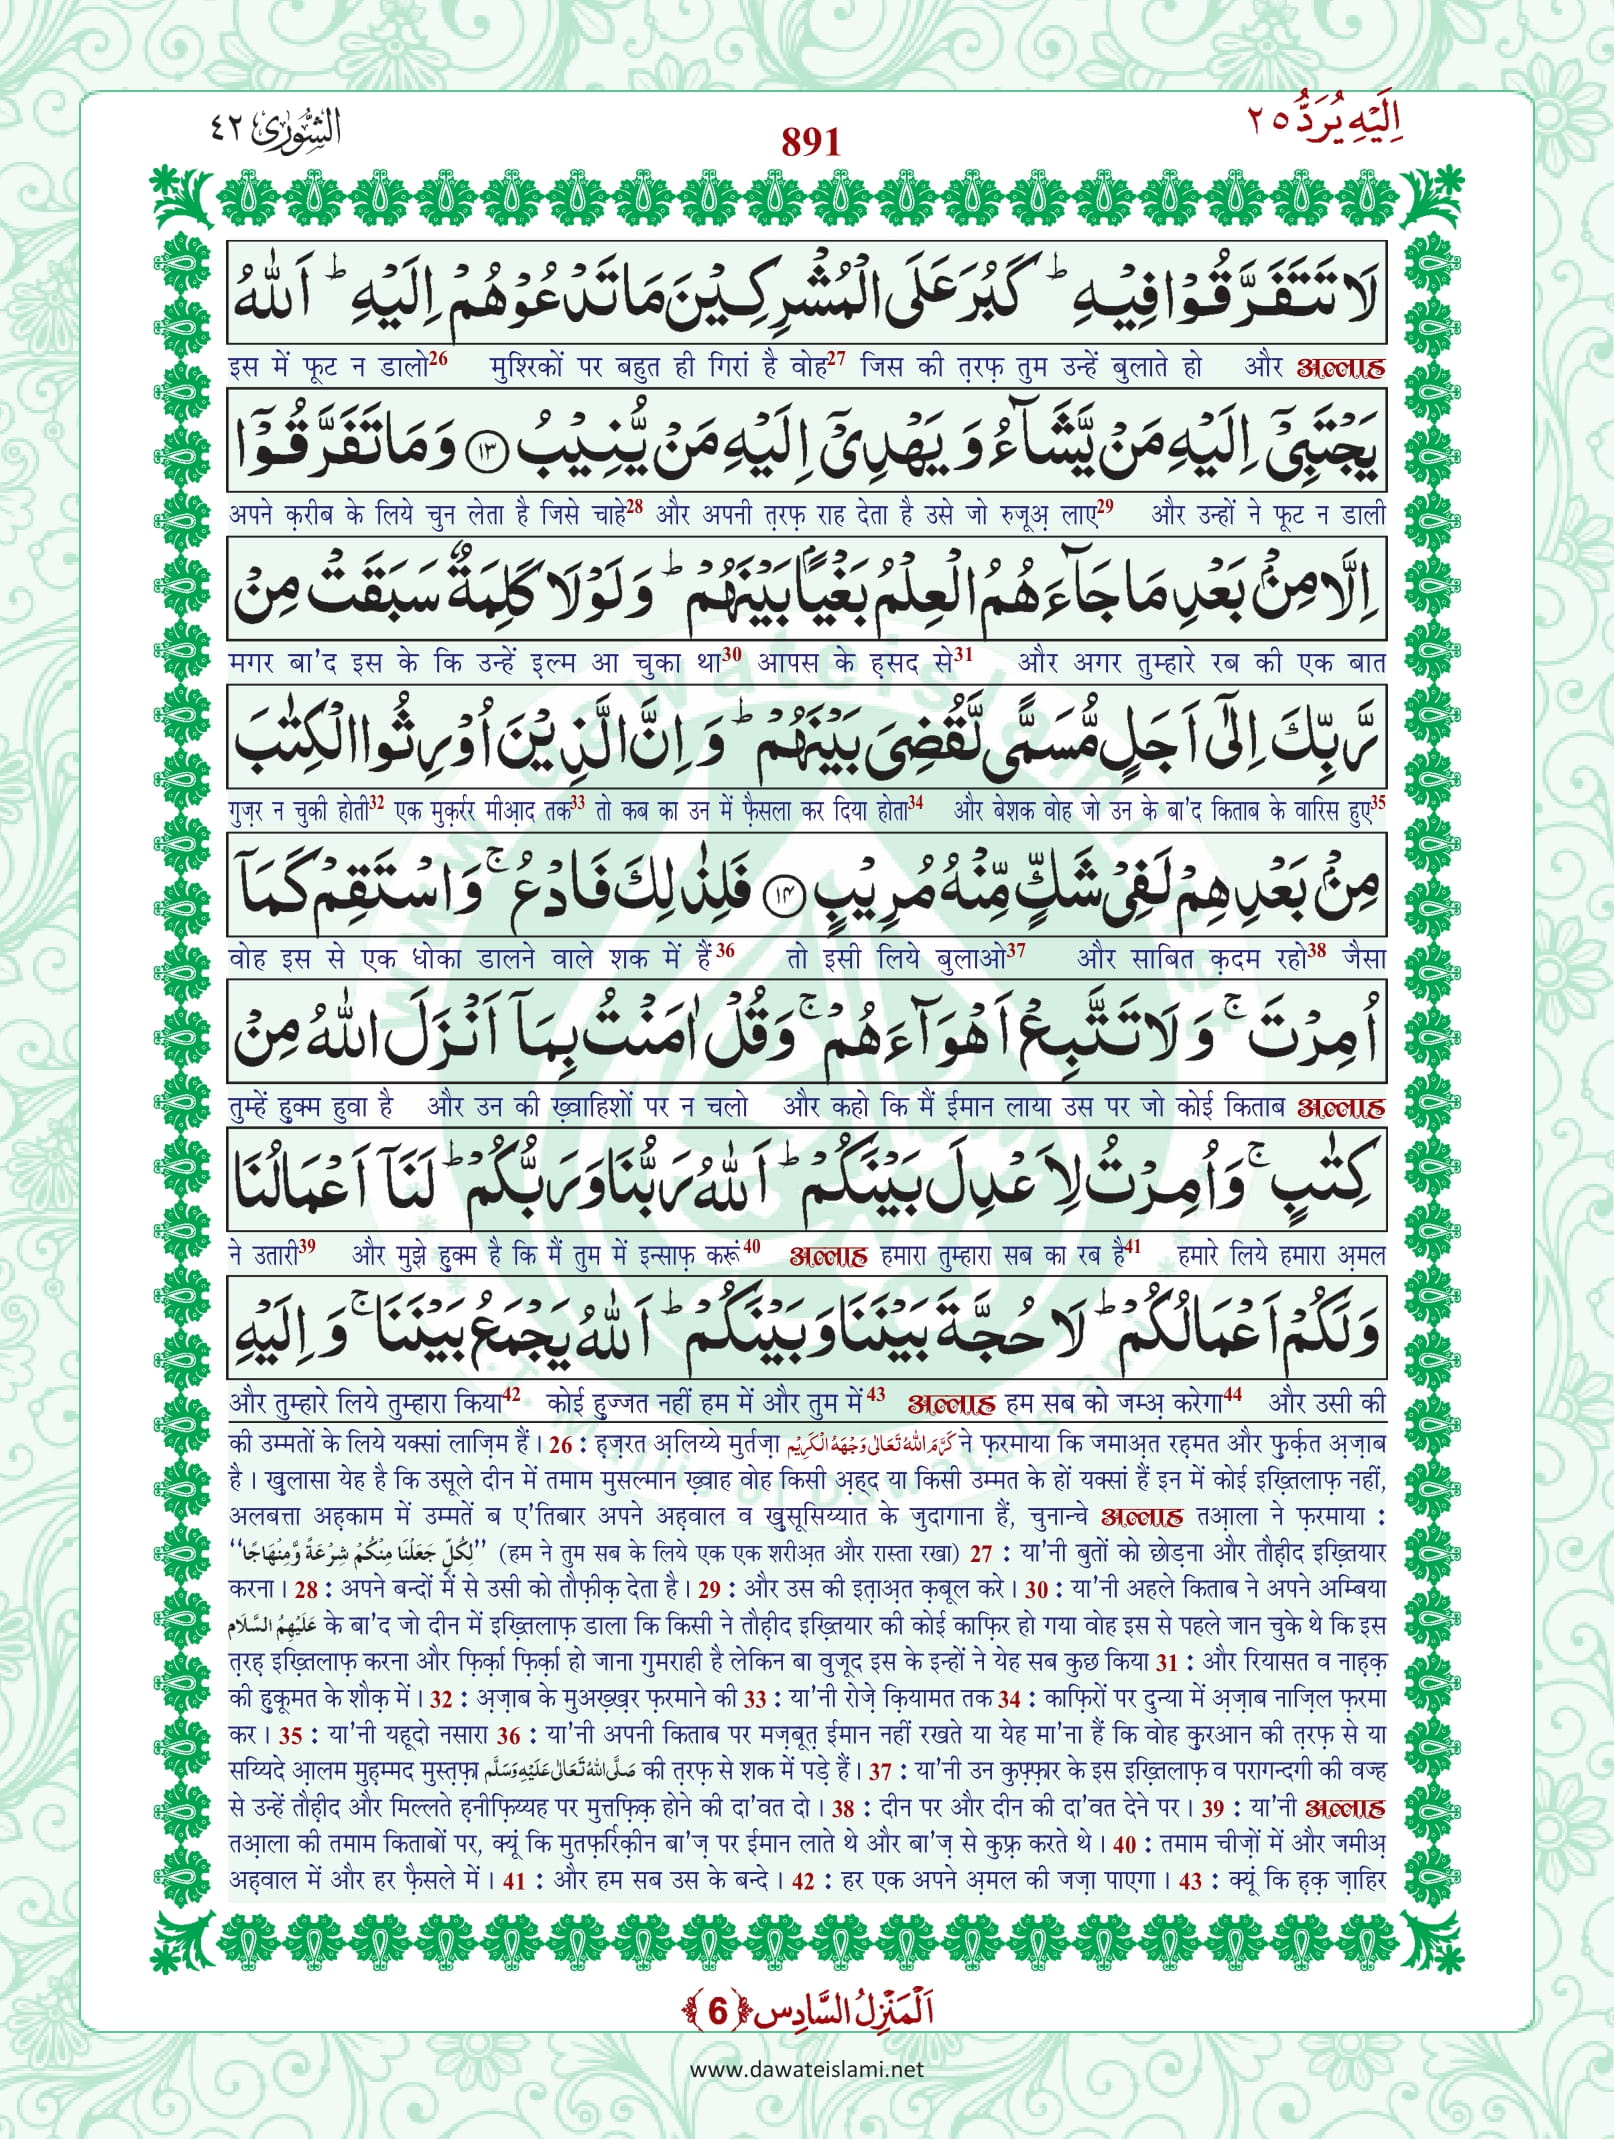 اِلَيْهِ يُرَدُّ ٢٥
891
الشُّوْرٰى ٤٢
لَا تَتَفَرَّقُوْا فِيْهِ ؕ كَبُرَ عَلَى الْمُشْرِكِيْنَ مَا تَدْعُوْهُمْ اِلَيْهِ ؕ اَللّٰهُ
इस में फूट न डालो26 मुश्रिकों पर बहुत ही गिरां है वोह27 जिस की त़रफ़ तुम उन्हें बुलाते हो और अल्लाह
يَجْتَبِيْۤ اِلَيْهِ مَنْ يَّشَآءُ وَ يَهْدِيْۤ اِلَيْهِ مَنْ يُّنِيْبُ ﴿١٣﴾ وَ مَا تَفَرَّقُوْۤا
अपने क़रीब के लिये चुन लेता है जिसे चाहे28 और अपनी त़रफ़ राह देता है उसे जो रुजूअ़ लाए29 और उन्हों ने फूट न डाली
اِلَّا مِنْۢ بَعْدِ مَا جَآءَهُمُ الْعِلْمُ بَغْيًۢا بَيْنَهُمْ ؕ وَ لَوْلَا كَلِمَةٌ سَبَقَتْ مِنْ
मगर बा'द इस के कि उन्हें इल्म आ चुका था30 आपस के ह़सद से31 और अगर तुम्हारे रब की एक बात
رَّبِّكَ اِلٰۤى اَجَلٍ مُّسَمًّى لَّقُضِيَ بَيْنَهُمْ ؕ وَ اِنَّ الَّذِيْنَ اُوْرِثُوا الْكِتٰبَ
गुज़र न चुकी होती32 एक मुक़र्रर मीआ़द तक33 तो कब का उन में फ़ैसला कर दिया होता34 और बेशक वोह जो उन के बा'द किताब के वारिस हुए35
مِنْۢ بَعْدِهِمْ لَفِيْ شَكٍّ مِّنْهُ مُرِيْبٍ ﴿١٤﴾ فَلِذٰلِكَ فَادْعُ ۚ وَ اسْتَقِمْ كَمَاۤ
वोह इस से एक धोका डालने वाले शक में हैं36 तो इसी लिये बुलाओ37 और साबित क़दम रहो38 जैसा
اُمِرْتَ ۚ وَ لَا تَتَّبِعْ اَهْوَآءَهُمْ ۚ وَ قُلْ اٰمَنْتُ بِمَاۤ اَنْزَلَ اللّٰهُ مِنْ
तुम्हें हुक्म हुवा है और उन की ख़्वाहिशों पर न चलो और कहो कि मैं ईमान लाया उस पर जो कोई किताब अल्लाह
كِتٰبٍ ۚ وَ اُمِرْتُ لِاَعْدِلَ بَيْنَكُمْ ؕ اَللّٰهُ رَبُّنَا وَ رَبُّكُمْ ؕ لَنَاۤ اَعْمَالُنَا
ने उतारी39 और मुझे हुक्म है कि मैं तुम में इन्साफ़ करूं40 अल्लाह हमारा तुम्हारा सब का रब है41 हमारे लिये हमारा अ़मल
وَ لَكُمْ اَعْمَالُكُمْ ؕ لَا حُجَّةَ بَيْنَنَا وَ بَيْنَكُمْ ؕ اَللّٰهُ يَجْمَعُ بَيْنَنَا ۚ وَ اِلَيْهِ
और तुम्हारे लिये तुम्हारा किया42 कोई हुज्जत नहीं हम में और तुम में43 अल्लाह हम सब को जम्अ़ करेगा44 और उसी की
की उम्मतों के लिये यक्सां लाज़िम हैं। 26 : ह़ज़रत अ़लिय्ये मुर्तज़ा كَرَّمَ اللهُ تَعَالٰى وَجْهَهُ الْكَرِيْم ने फ़रमाया कि जमाअ़त रह़मत और फुर्क़त अ़ज़ाब
है। खुलासा येह है कि उसूले दीन में तमाम मुसल्मान ख़्वाह वोह किसी अ़ह्द या किसी उम्मत के हों यक्सां हैं इन में कोई इख़्तिलाफ़ नहीं,
अलबत्ता अह़काम में उम्मतें ब ए'तिबार अपने अह़वाल व खुसूसिय्यात के जुदागाना हैं, चुनान्चे अल्लाह तआ़ला ने फ़रमाया :
"لِكُلٍّ جَعَلْنَا مِنْكُمْ شِرْعَةً وَّمِنْهَاجًا" (हम ने तुम सब के लिये एक एक शरीअ़त और रास्ता रखा) 27 : या'नी बुतों को छोड़ना और तौह़ीद इख़्तियार
करना। 28 : अपने बन्दों में से उसी को तौफ़ीक़ देता है। 29 : और उस की इत़ाअ़त क़बूल करे। 30 : या'नी अहले किताब ने अपने अम्बिया
عَلَيْهِمُ السَّلَام के बा'द जो दीन में इख़्तिलाफ़ डाला कि किसी ने तौह़ीद इख़्तियार की कोई काफ़िर हो गया वोह इस से पहले जान चुके थे कि इस
त़रह़ इख़्तिलाफ़ करना और फ़िर्क़ा फ़िर्क़ा हो जाना गुमराही है लेकिन बा वुजूद इस के इन्हों ने येह सब कुछ किया 31 : और रियासत व नाह़क़
की हुकूमत के शौक़ में। 32 : अ़ज़ाब के मुअख़्ख़र फ़रमाने की 33 : या'नी रोज़े क़ियामत तक 34 : काफ़िरों पर दुन्या में अ़ज़ाब नाज़िल फ़रमा
कर। 35 : या'नी यहूदो नसारा 36 : या'नी अपनी किताब पर मज़बूत़ ईमान नहीं रखते या येह मा'ना हैं कि वोह कुरआन की त़रफ़ से या
सय्यिदे आ़लम मुह़म्मद मुस्त़फ़ा صَلَّى اللهُ تَعَالٰى عَلَيْهِ وَسَلَّم की त़रफ़ से शक में पड़े हैं। 37 : या'नी उन कुफ़्फ़ार के इस इख़्तिलाफ़ व परागन्दगी की वज्ह
से उन्हें तौह़ीद और मिल्लते ह़नीफ़िय्यह पर मुत्तफ़िक़ होने की दा'वत दो। 38 : दीन पर और दीन की दा'वत देने पर। 39 : या'नी अल्लाह
तआ़ला की तमाम किताबों पर, क्यूं कि मुतफ़र्रिक़ीन बा'ज़ पर ईमान लाते थे और बा'ज़ से कुफ़्र करते थे। 40 : तमाम चीज़ों में और जमीअ़
अह़वाल में और हर फ़ैसले में। 41 : और हम सब उस के बन्दे। 42 : हर एक अपने अ़मल की जज़ा पाएगा। 43 : क्यूं कि ह़क़ ज़ाहिर
اَلْمَنْزِلُ السَّادِس ﴿6﴾
www.dawateislami.net